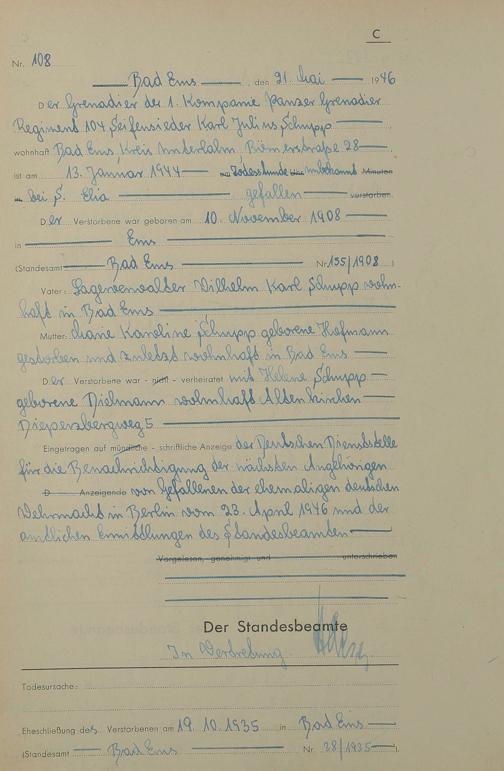 C
Nr. 108
Bad Ems, den 21. Mai 1946
Der Grenadier der 1. Kompanie Panzer Grenadier
Regiment 104 Seifensieder Karl Julius Schupp
wohnhaft Bad Ems, Kreis Unterlahn Römerstraße 28
ist am 13. Januar 1944 um Todesstunde Uhr unbekannt Minuten
in bei S. Elia gefallen verstorben.
Der Verstorbene war geboren am 10. November 1908
in Ems
(Standesamt Bad Ems Nr. 155/1908)
Vater: Lagerverwalter Wilhelm Karl Schupp wohn-
haft in Bad Ems
Mutter: Karoline Schupp geborene Hofmann
gestorben und zuletzt wohnhaft in Bad Ems
Der Verstorbene war - nicht - verheiratet mit Helene Schupp
geborene Dielmann wohnhaft Altenkirchen
Dieperzbergweg 5
Eingetragen auf mündliche - schriftliche Anzeige der Deutschen Dienststelle
für die Benachrichtigung der nächsten Angehörigen
D Anzeigende von Gefallenen der ehemaligen deutschen
Wehrmacht in Berlin vom 23. April 1946 und der
amtlichen Ermittlungen des Standesbeamten
Vorgelesen, genehmigt und unterschrieben
Der Standesbeamte
In Vertretung
Todesursache:
Eheschließung des Verstorbenen am 19.10.1935 in Bad Ems
(Standesamt Bad Ems Nr. 28/1935).